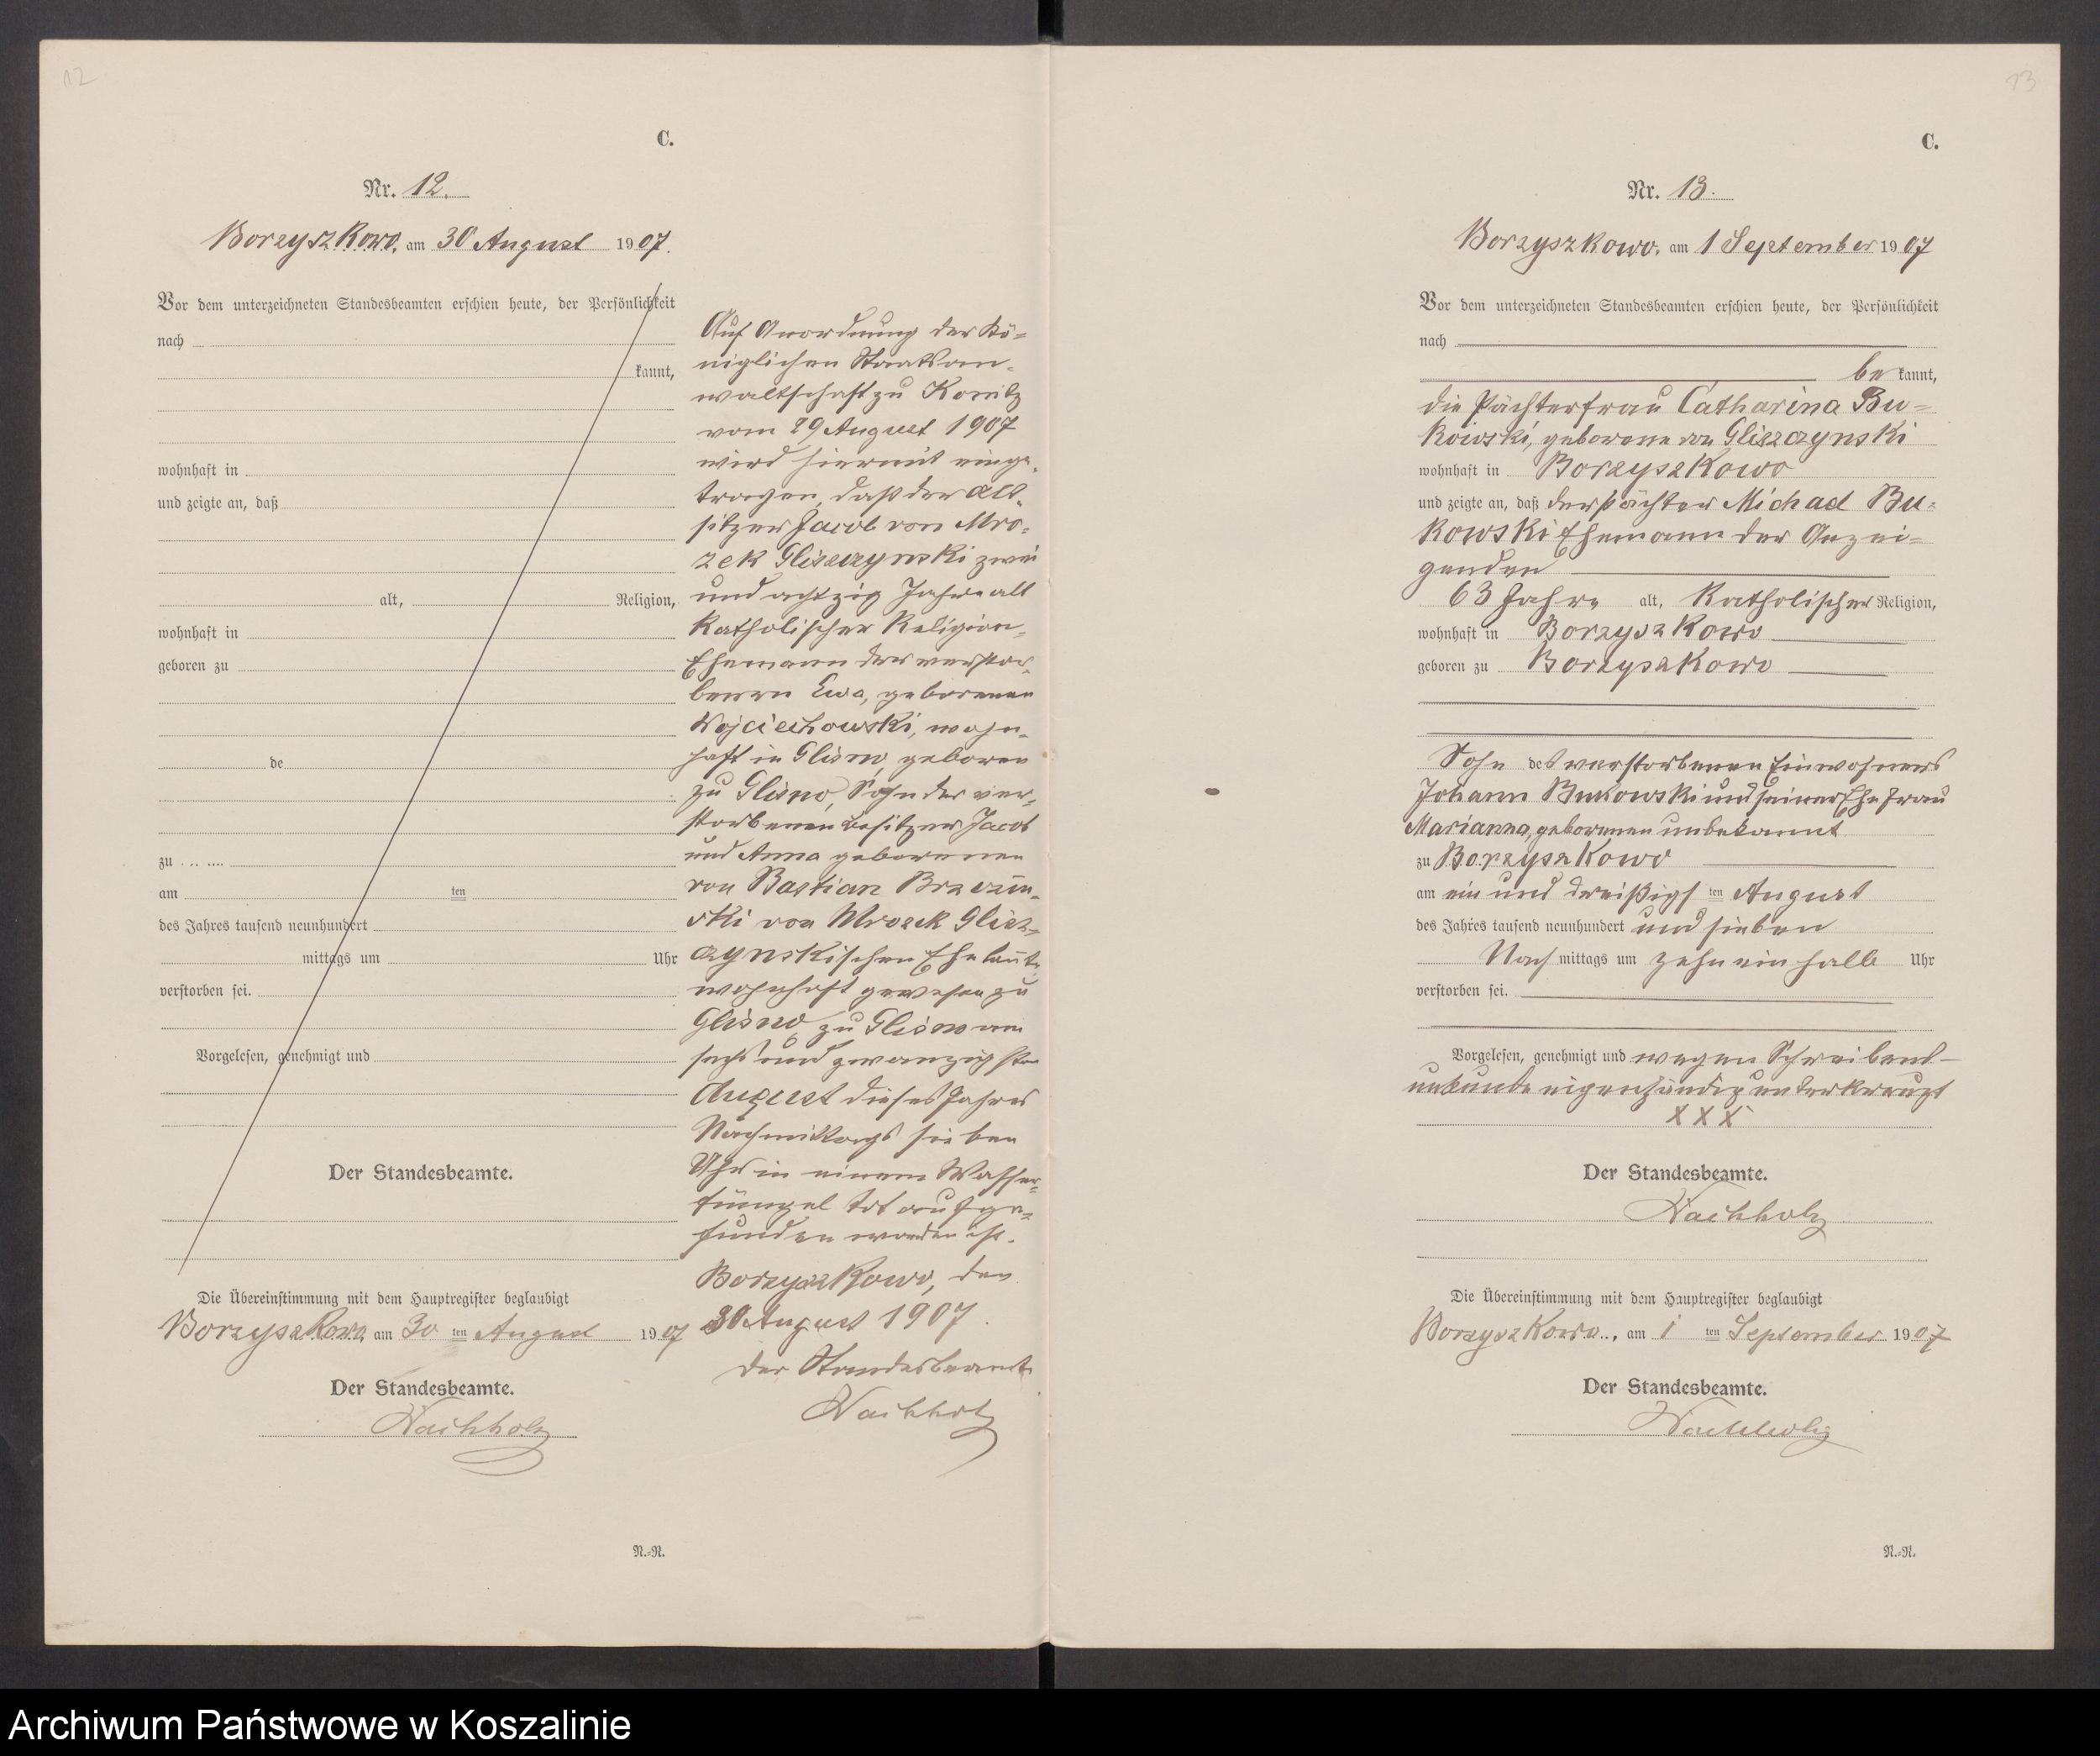 12
C.
Nr. 12.
Borzyszkowo, am 30 August 1907.
Vor dem unterzeichneten Standesbeamten erschien heute, der Persönlichkeit
nach
kannt,
wohnhaft in
und zeigte an, daß
alt, Religion,
wohnhaft in
geboren zu
de
zu
am ten
des Jahres tausend neunhundert
mittags um Uhr
verstorben sei.
Vorgelesen, genehmigt und
Der Standesbeamte.
Die Übereinstimmung mit dem Hauptregister beglaubigt
Borzyszkowo, am 30 ten August 1907
Der Standesbeamte.
Nachholz
N.=N.
Auf Anordnung der Kö=
niglichen Staatsan=
waltschaft zu Konitz
vom 29 August 1907
wird hiermit einge=
tragen, daß der Alt=
sitzer Jacob von Mro=
zek Gliszczynski zwei
und achtzig Jahre alt
katholischer Religion,
Ehemann der verstor=
benen Ewa, geborenen
Wojciechowski, wohn=
haft in Glisno, geboren
zu Glisno, Sohn der ver=
storbenen Besitzer Jacob
und Anna geborenen
von Bastian
ski von Mrozek Glisz=
czynskischen Eheleute
wohnhaft gewesen zu
Glisno, zu Glisno am
sechs und zwanzigsten
August dieses Jahres
Nachmittags sieben
Uhr in einem Wasser=
tümpel tot aufge=
funden worden ist.
Borzyszkowo, den
30 August 1907.
Der Standesbeamte
Nachholz
13
C.
Nr. 13.
Borzyszkowo, am 1 September 1907
Vor dem unterzeichneten Standesbeamten erschien heute, der Persönlichkeit
nach
be kannt,
die Pächterfrau Catharina Bu=
kowski, geborene von Gliszczynski
wohnhaft in Borzyszkowo
und zeigte an, daß der Pächter Michael Bu=
kowski Ehemann der Anzei=
genden
63 Jahre alt, katholischer Religion,
wohnhaft in Borzyszkowo
geboren zu Borzyszkowo
Sohn des verstorbenen Einwohners
Johann Bukowski und seiner Ehefrau
Marianna, geborenen unbekannt
zu Borzyszkowo
am ein und dreißigs ten August
des Jahres tausend neunhundert und sieben
Nach mittags um zehn ein halb Uhr
verstorben sei.
Vorgelesen, genehmigt und wegen Schreibens=
unkunde eigenhändig unterkreuzt
X X X
Der Standesbeamte.
Nachholz
Die Übereinstimmung mit dem Hauptregister beglaubigt
Borzyszkowo, am 1 ten September 1907
Der Standesbeamte.
Nachholz
N.=N.
Archiwum Państwowe w Koszalinie